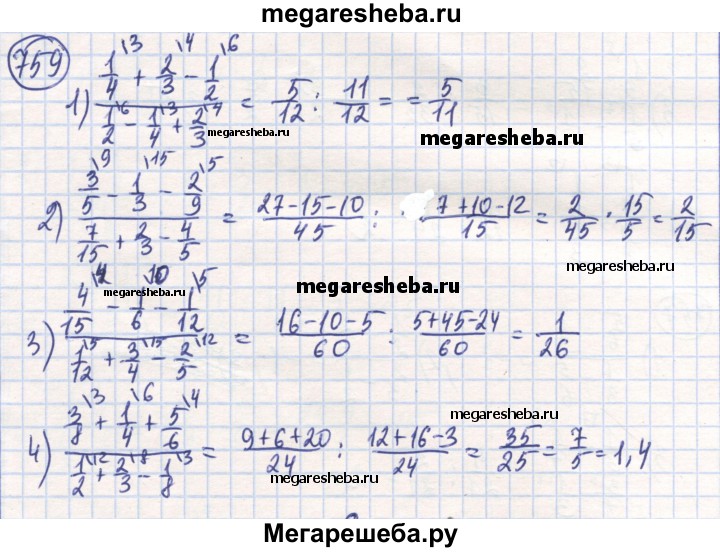 megaresheba.ru
759
1) (1/4\3 + 2/3\4 − 1/2\6) / (1/2\6 − 1/4\3 + 2/3\4) = 5/12 : 11/12 = = 5/11
megaresheba.ru
megaresheba.ru
2) (3/5\9 − 1/3\15 − 2/9\5) / (7/15 + 2/3 − 4/5) = (27−15−10)/45 : (7+10−12)/15 = 2/45 · 15/5 = 2/15
megaresheba.ru
megaresheba.ru
megaresheba.ru
3) (4/15\4 − 1/6\10 − 1/12\5) / (1/12\5 + 3/4\15 − 2/5\12) = (16−10−5)/60 : (5+45−24)/60 = 1/26
megaresheba.ru
4) (3/8\3 + 1/4\6 + 5/6\4) / (1/2\12 + 2/3\8 − 1/8\3) = (9+6+20)/24 : (12+16−3)/24 = 35/25 = 7/5 = 1,4
megaresheba.ru
Мегарешеба.ру